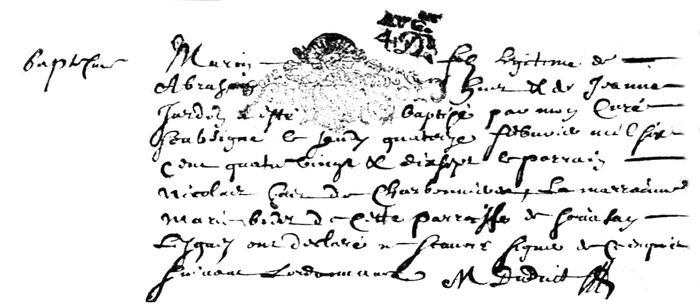 baptesme Marin fils legitime de
Abraham huet & de Jeanne
Jardin a esté baptisé par moy Curé
soubsigné le Jeudy quatorze febvrier mil six
Cent quatre vingt & dixsept le parrain
Nicolas de Charbonnieres, La marraine
Marie de Cette parroisse de
Lesquels ont declaré ne scavoir signer de Ce enquis
suivant Lordonnance M Didriet